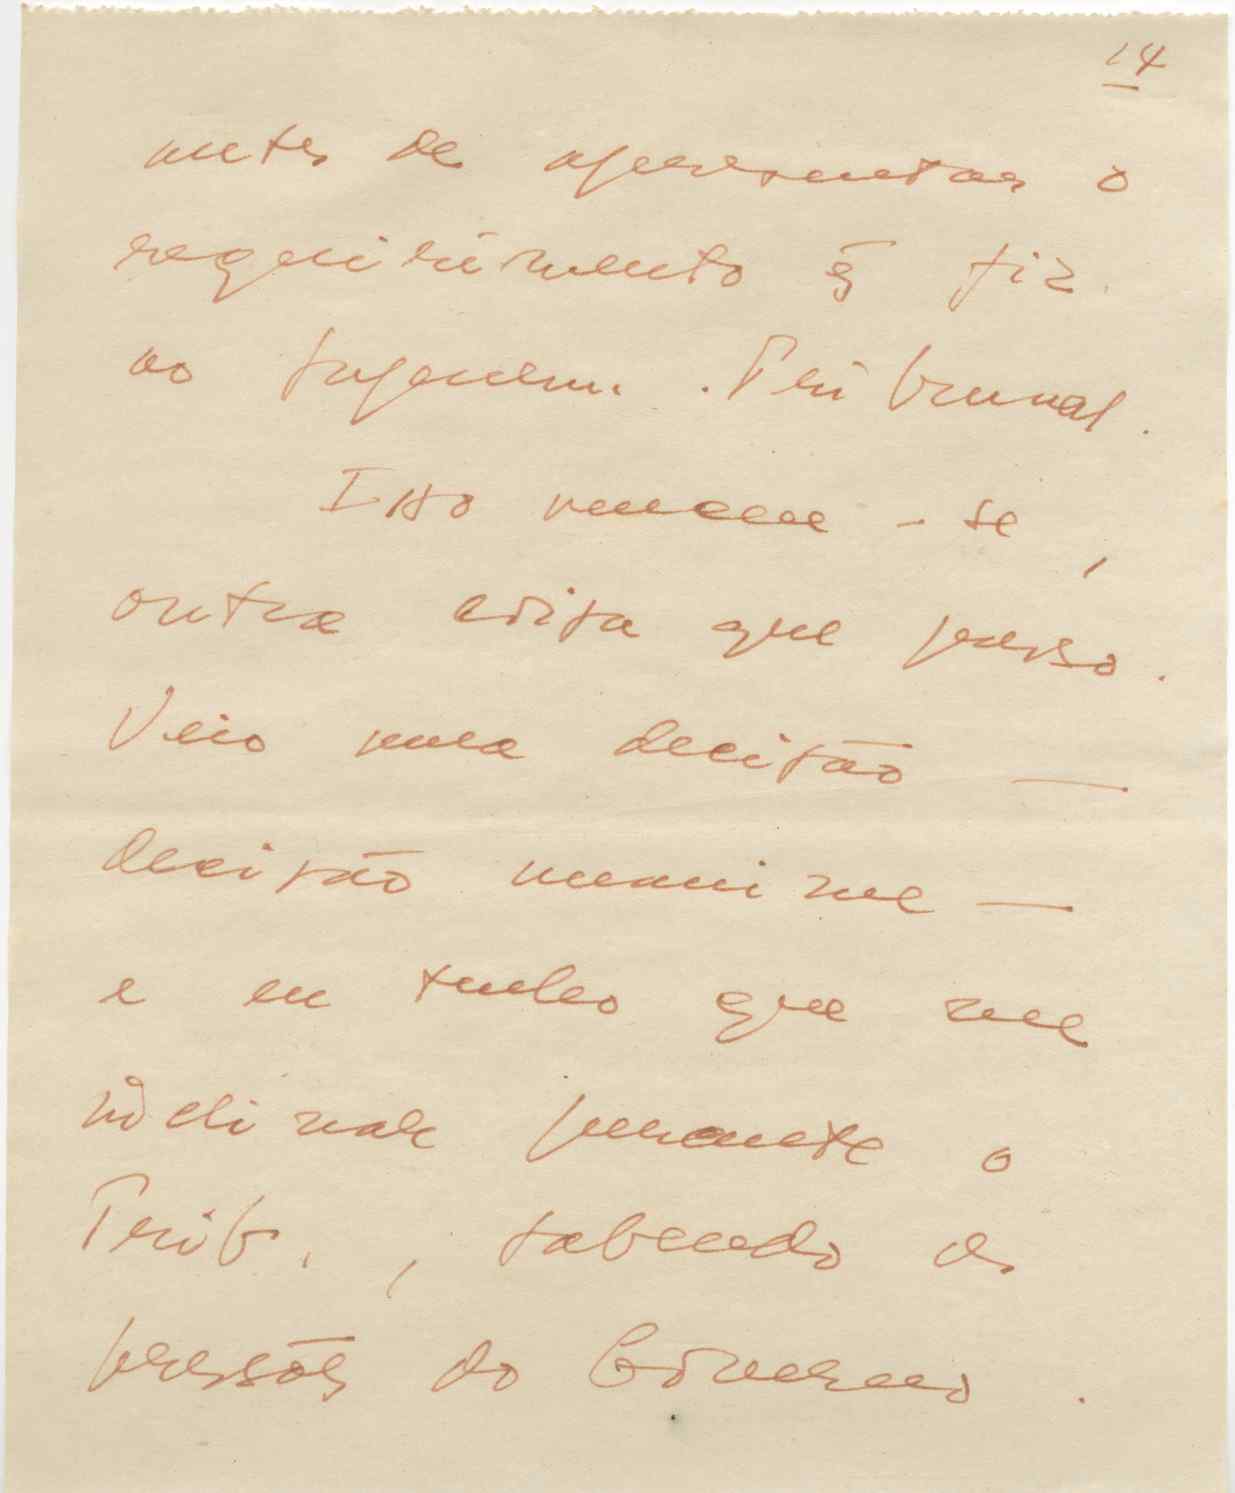 14
antes de apresentar o
requerimento q̃ fiz
ao Supremo Tribunal.
Isso vencer-se,
outra coisa que penso.
Veio uma decisão —
decisão unanime —
e eu tenho que me
inclinar perante o
Trib., sabendo as
pressões do Governo.